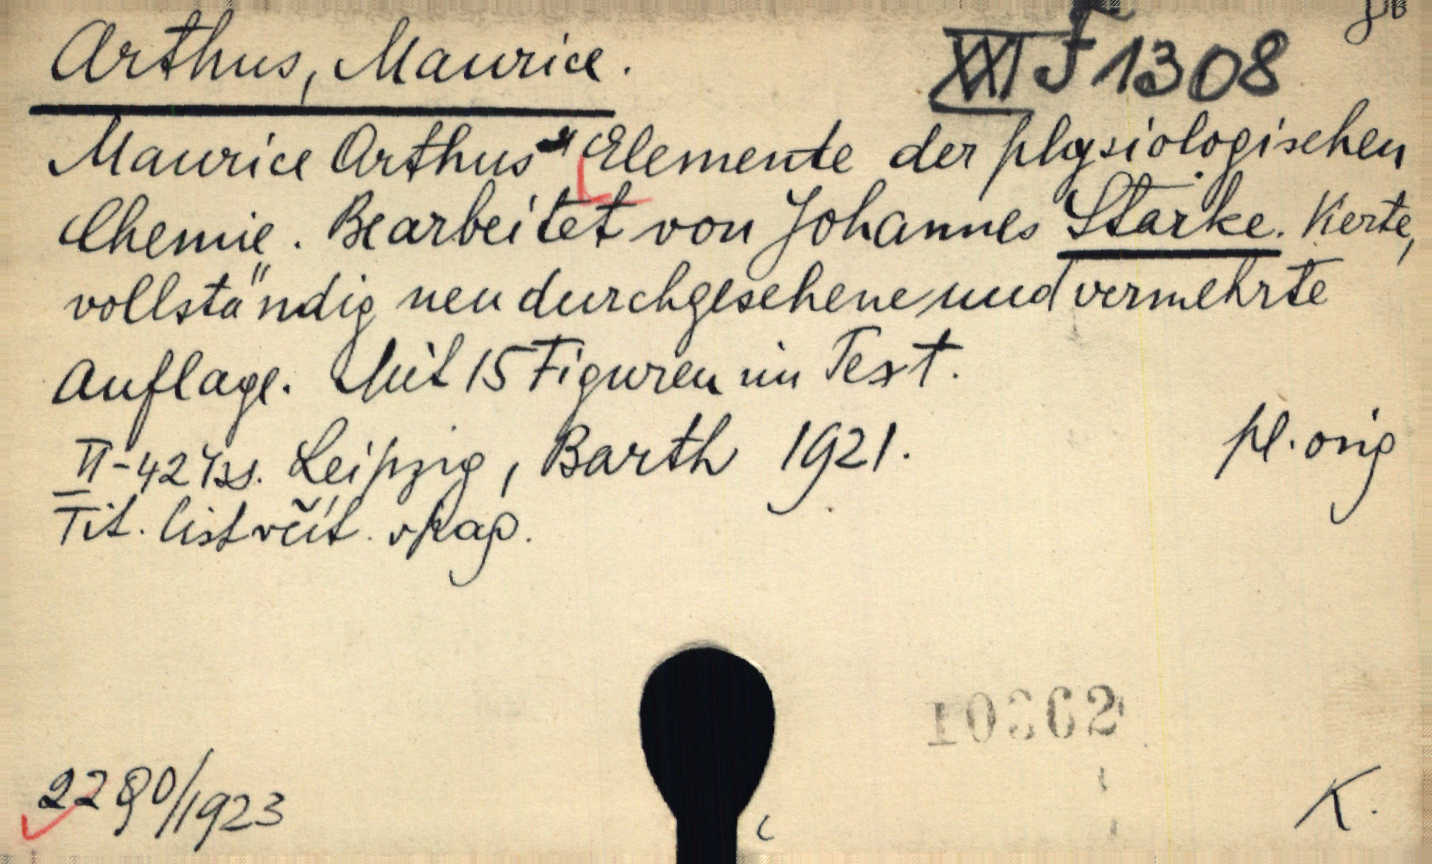 Arthus, Maurice.
XXI F 1308
Maurice Arthus" Elemente der physiologischen
Chemie. Bearbeitet von Johannes Starke. Vierte,
vollständig neu durchgesehene und vermehrte
Auflage. Mit 15 Figuren im Text.
Leipzig, Barth 1921.
pl. orig
Tit. list včít. v pag.
10362
2280/1923
K.